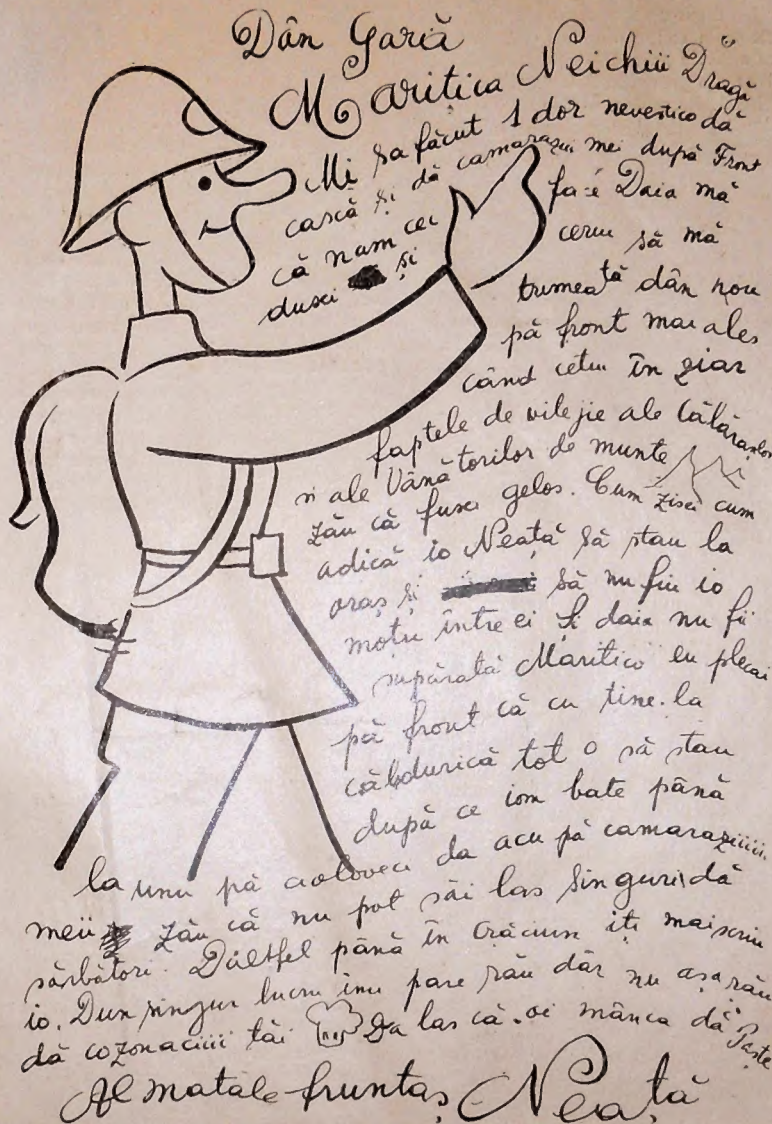 Dân Gară
Maritica Neichii Dragă
Mi sa făcut 1 dor nevestico dă
cască și dă camarazii mei după Front
că nam ce face Daia mă
dusei și cerui să mă
trumeată dân nou
pă front mai ales
când cetui în ziar
faptele de vilejie ale Călărașilor
și ale Vânătorilor de munte
zău că fusei gelos. Cum zisei cum
adică io Neață să stau la
oraș și să nu fiu io
moțu între ei Și daia nu fii
supărată Maritico eu plecai
pă front că cu tine la
căldurică tot o să stau
după ce iom bate până
la unu pă cioloveci da acu pă camaraziiiii
meii zău că nu pot săi las singuri dă
sărbători. Dăltfel până în Crăciun iți mai scriu
io. Dun singur lucru imi pare rău dăr nu așa rău
dă cozonaciii tăi Da las că oi mânca dă Paște
Al matale fruntaș Neață